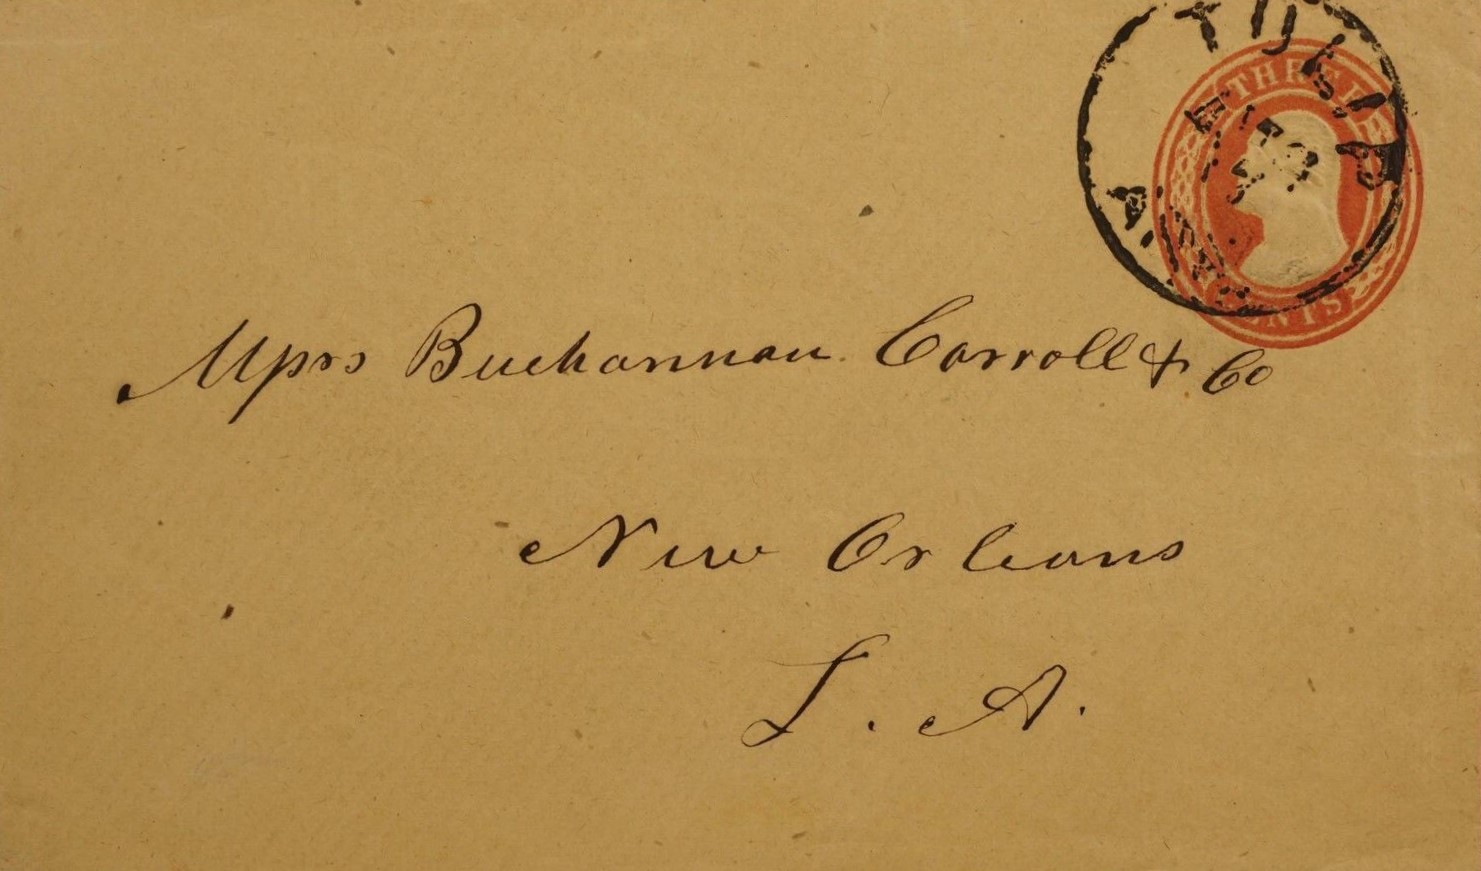 TULIP
ARK
THREE
CENTS
Messrs Buchannan Carroll & Co
New Orleans
L. A.